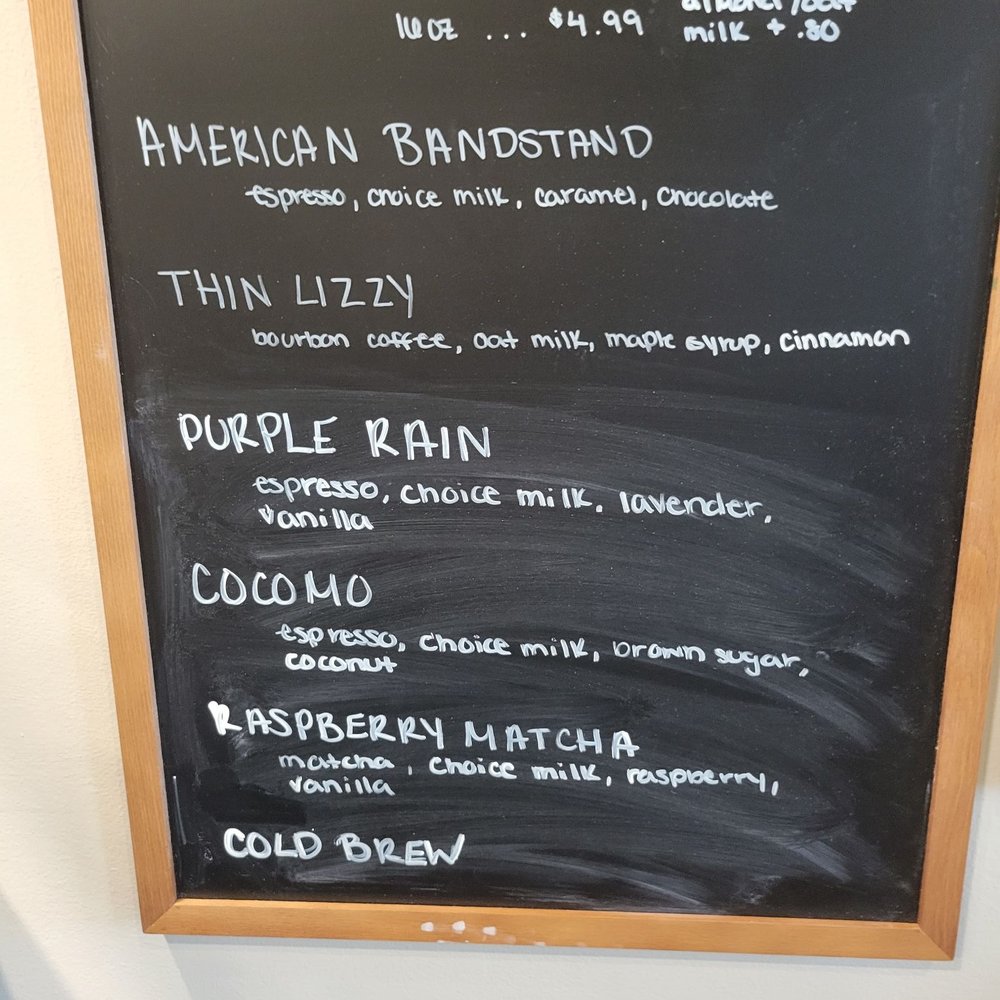 16 oz ... $4.99 milk + .80
AMERICAN BANDSTAND
espresso, choice milk, caramel, chocolate
THIN LIZZY
bourbon coffee, oat milk, maple syrup, cinnamon
PURPLE RAIN
espresso, choice milk, lavender,
vanilla
COCOMO
espresso, choice milk, brown sugar,
coconut
RASPBERRY MATCHA
matcha, choice milk, raspberry,
vanilla
COLD BREW